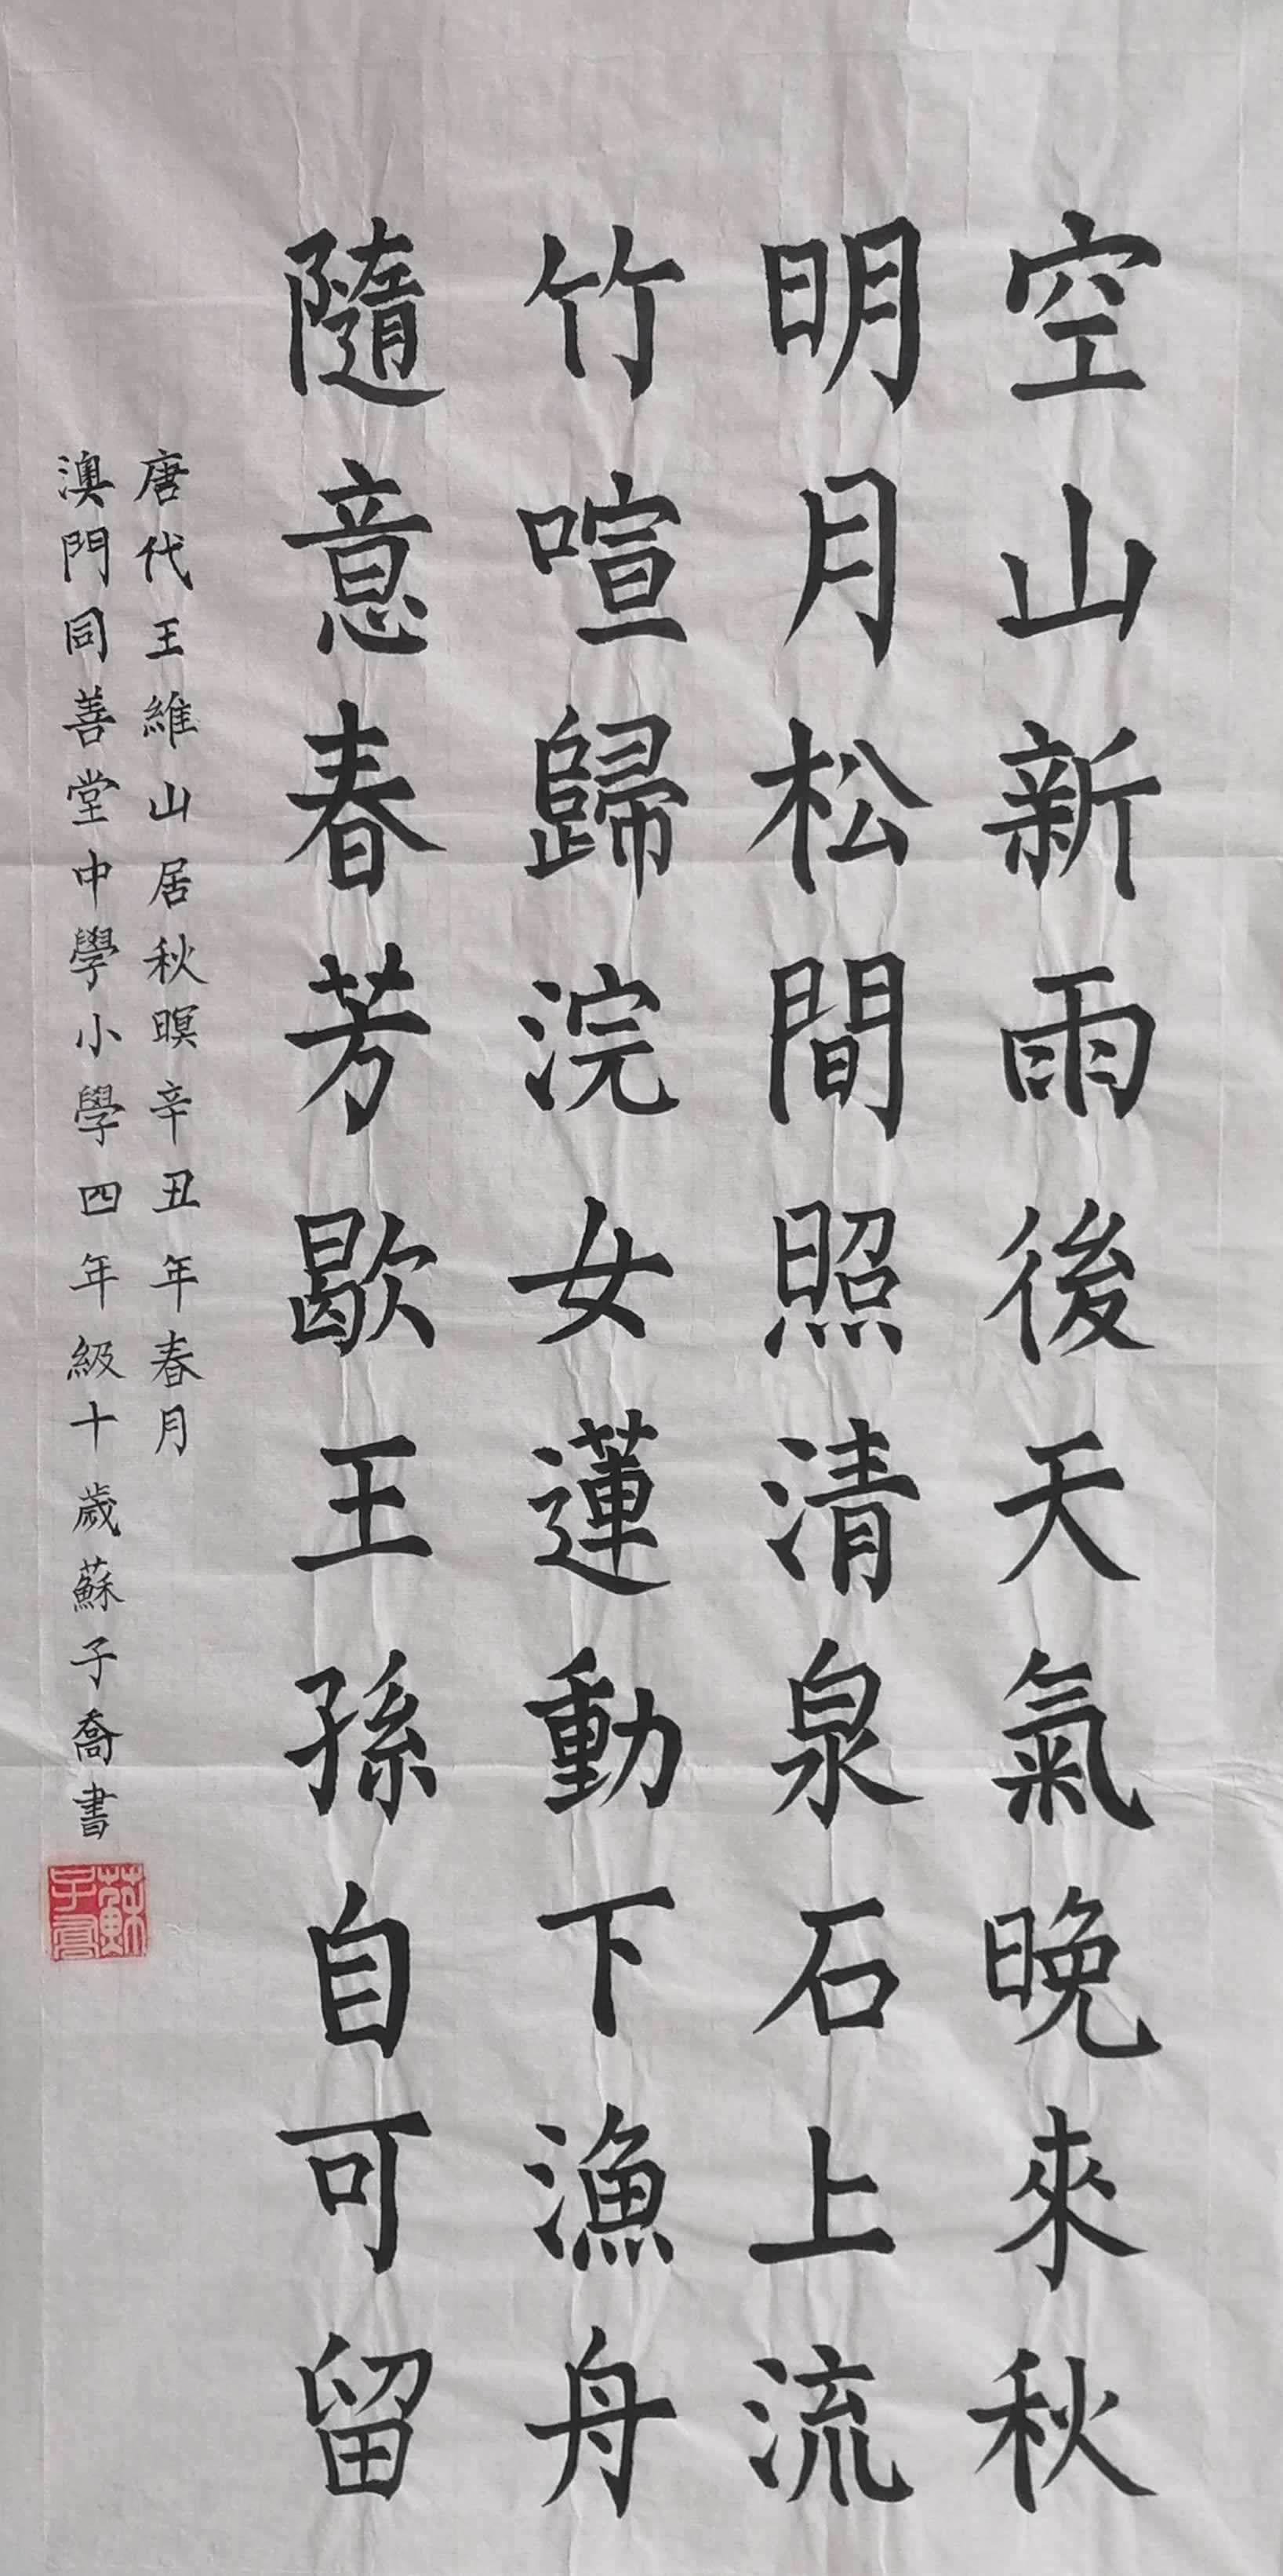 空山新雨後天氣晚來秋
明月松間照清泉石上流
竹喧歸浣女蓮動下漁舟
隨意春芳歇王孫自可留
唐代王維山居秋暝辛丑年春月
澳門同善堂中學小學四年級十歲蘇子喬書
蘇子喬